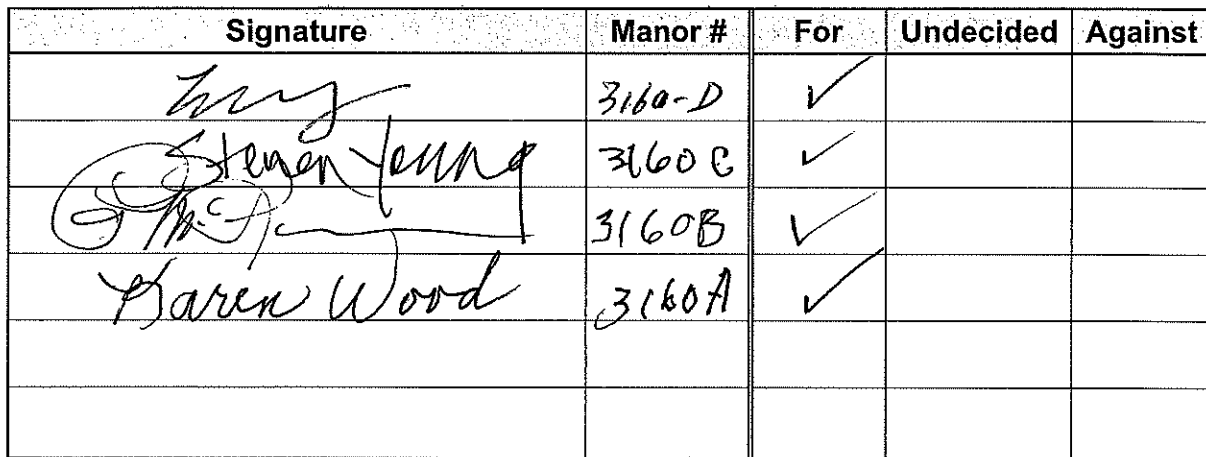 Signature Manor # For Undecided Against
3160-D ✓
Steven Young 3160 C ✓
3160B ✓
Karen Wood 3160A ✓